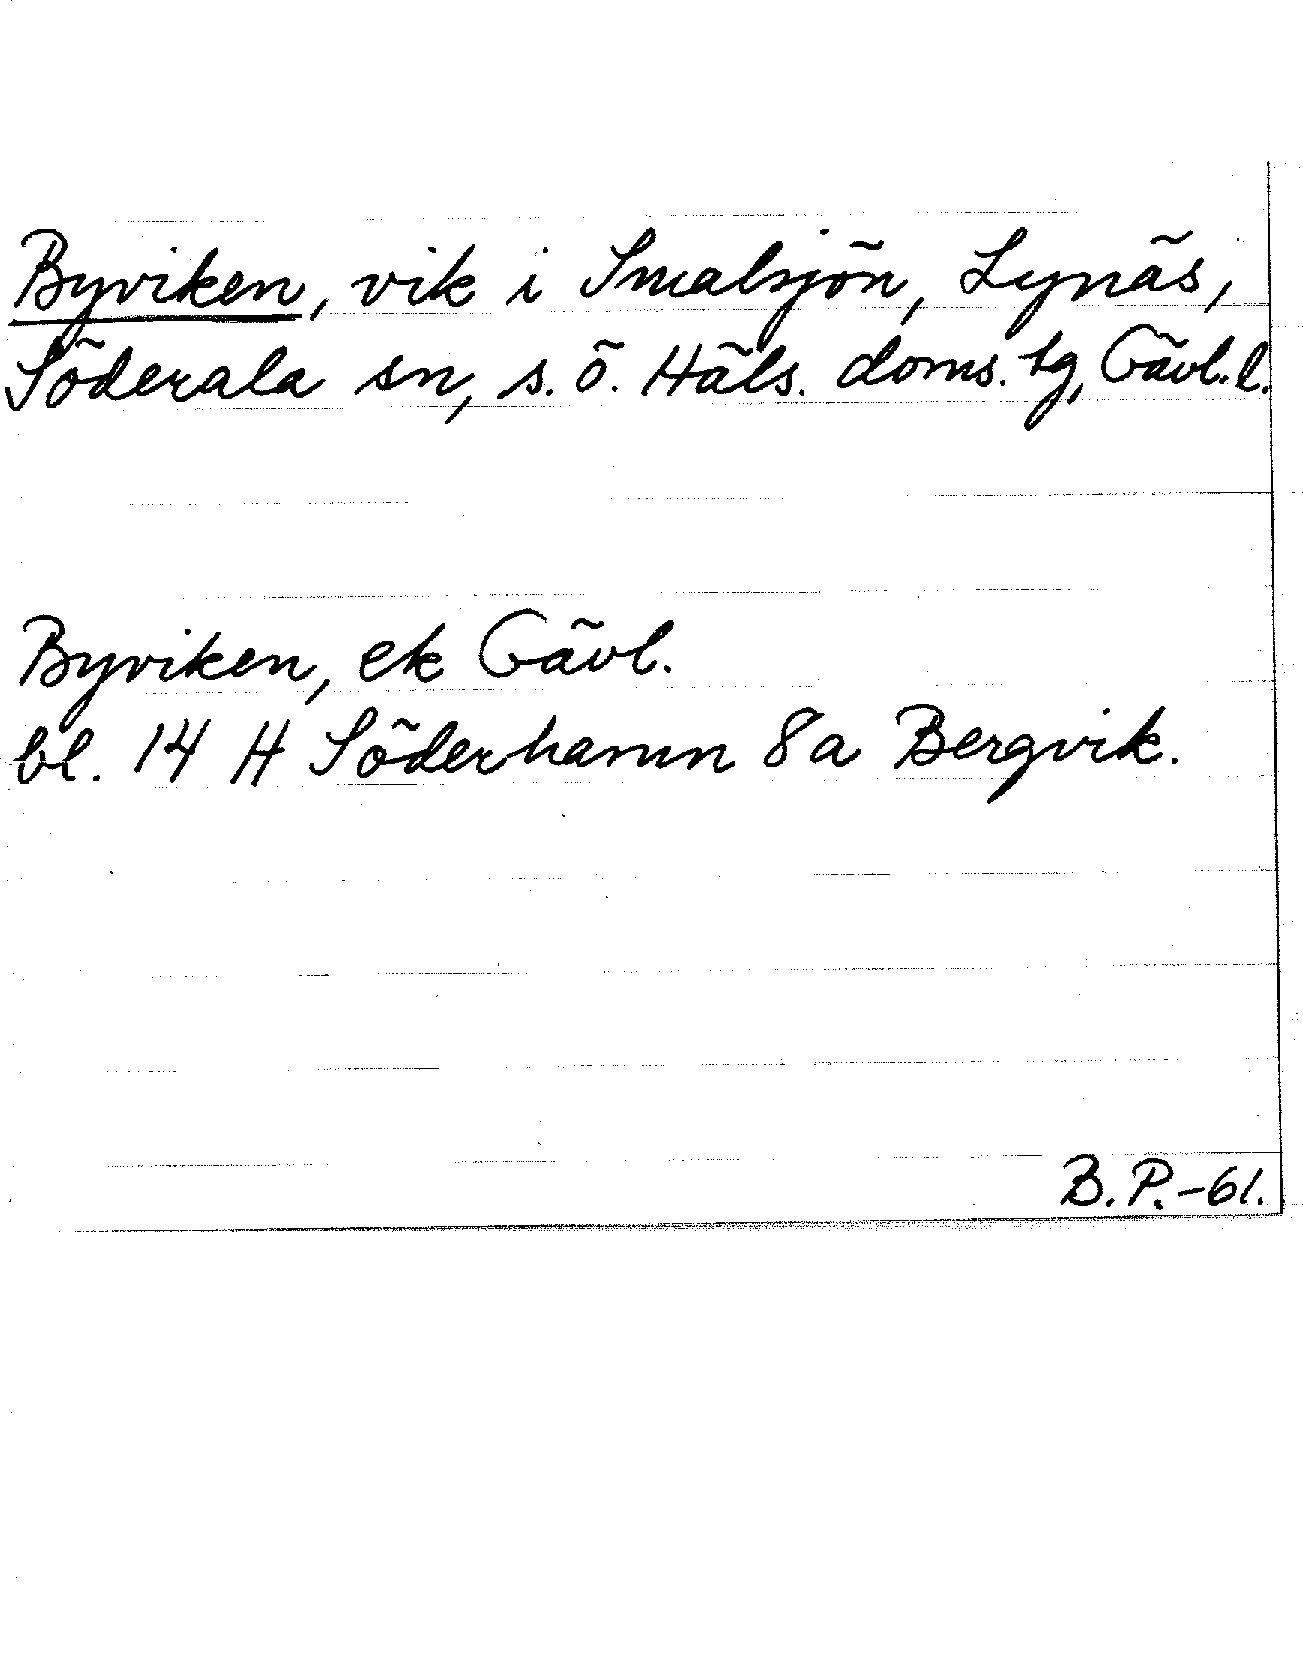 Byviken, vik i Smalsjön, Lynäs,
Söderala sn, s. ö. Häls. doms. tg, Gävl. l.
Byviken, ek Gävl.
bl. 14 H Söderhamn 8a Bergvik.
B. P. -61.